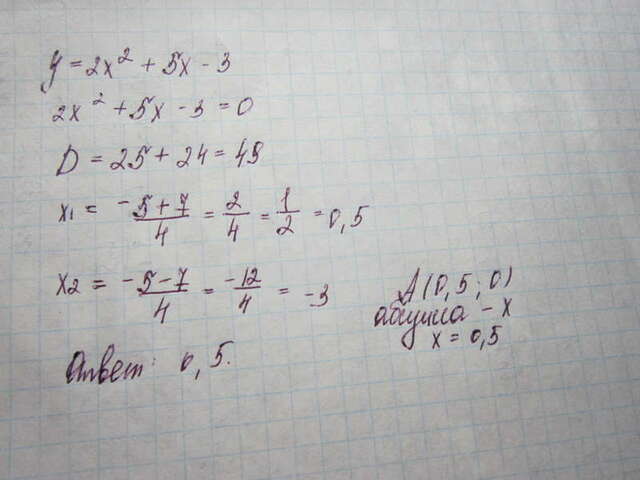 y = 2x² + 5x - 3
2x² + 5x - 3 = 0
D = 25 + 24 = 49
x₁ = (-5+7)/4 = 2/4 = 1/2 = 0,5
x₂ = (-5-7)/4 = -12/4 = -3
A(0,5; 0)
абцисса - x
x = 0,5
Ответ: 0,5.